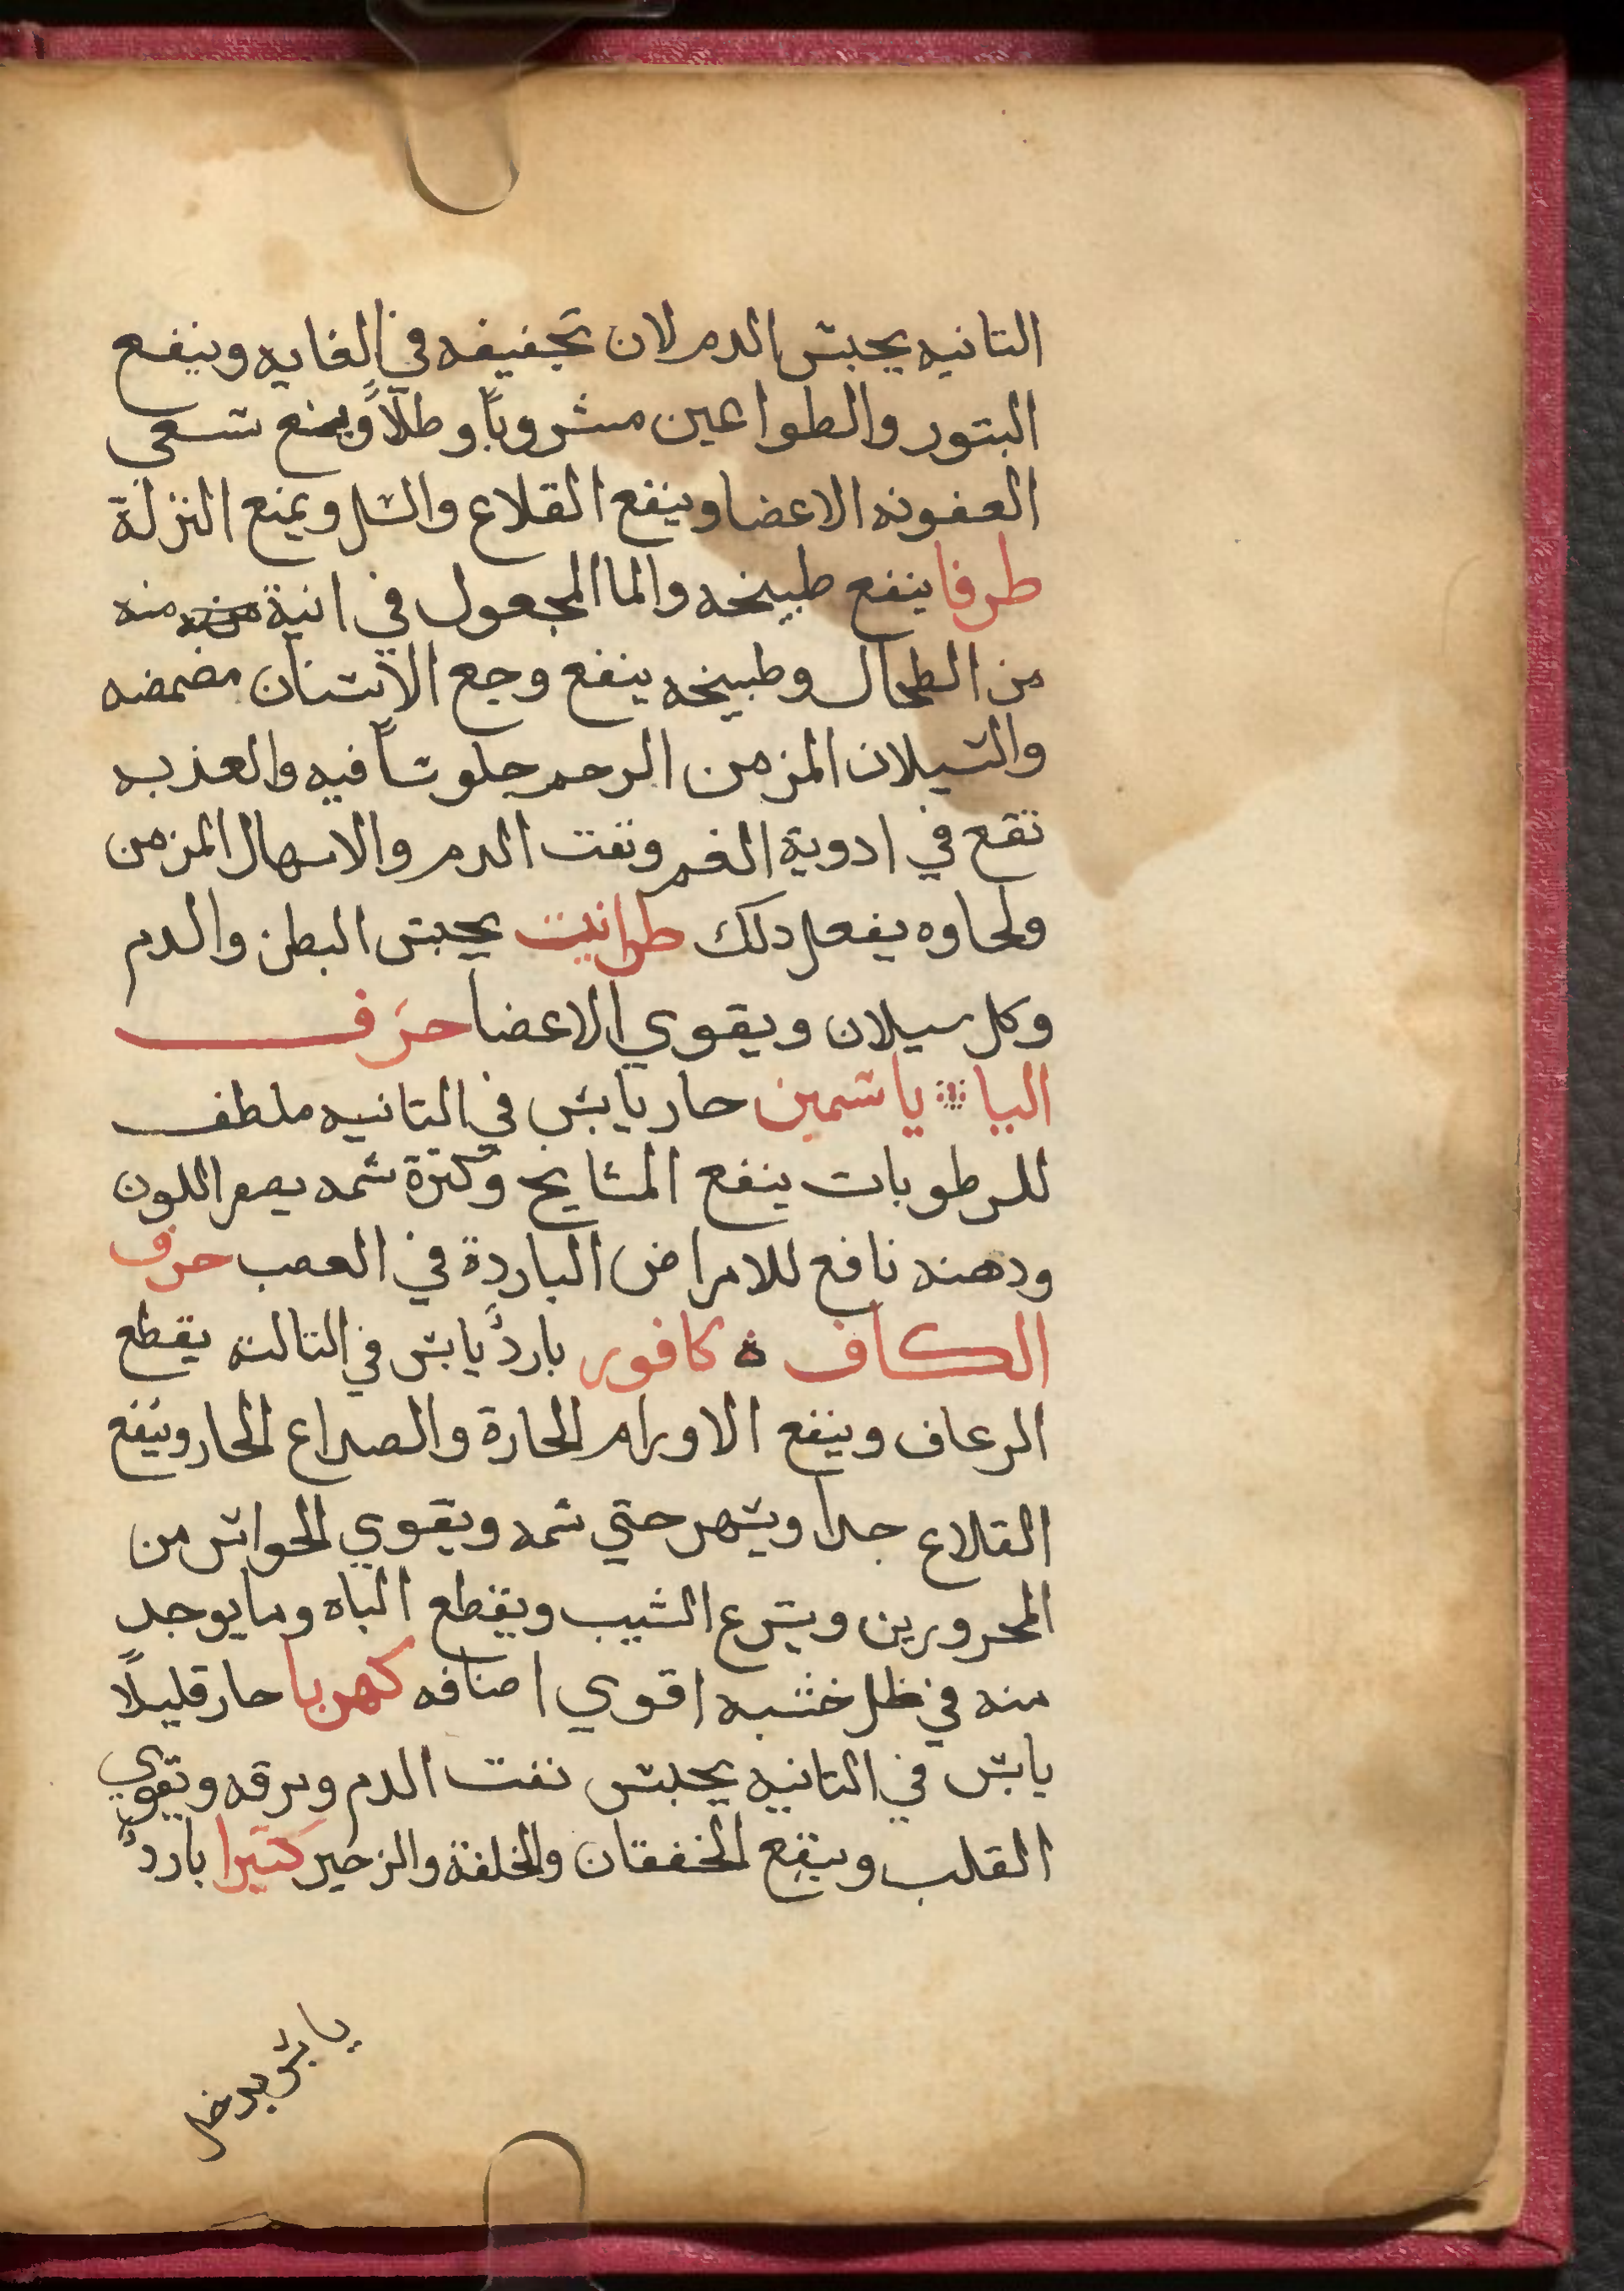 التانيه يحبس الدم لان تجفيفه في الغايه وينفع
البتور والطواعين مشروباً وطلاً ويمنع سعي
العفونه الاعضا وينفع القلاع والسل ويمنع النزلة
طرفا ينفع طبيخه والما المجعول في انية منه
من الطحال وطبيخه ينفع وجع الاسنان مضمضه
والسيلان المزمن الرحم جلوساً فيه والعذبه
تقع في ادوية الفم ونفت الدم والاسهال المزمن
ولحاوه يفعل دلك طراتيت يحبس البطن والدم
وكل سيلان ويقوي الاعضا حرف
اليا ياسمين حار يابس في التانيه ملطف
للرطوبات ينفع المشايخ وكترة شمه يصفر اللون
ودهنه نافع للامراض الباردة في العصب حرف
الكاف ۞ كافور بارد يابس في التالته يقطع
الرعاف وينفع الاورام الحارة والصداع الحار وينفع
القلاع جدا ويسهر حتي شمه ويقوي الحواس من
المحرورين ويسرع الشيب ويقطع الباه وما يوجد
منه في ظل خشبه اقوي اصنافه كهربا حار قليلاً
يابس في التانيه يحبس نفت الدم ونزفه وتقوي
القلب وينفع الخفقان والخلفة والزحير كتيرا بارد
يابس يدخل